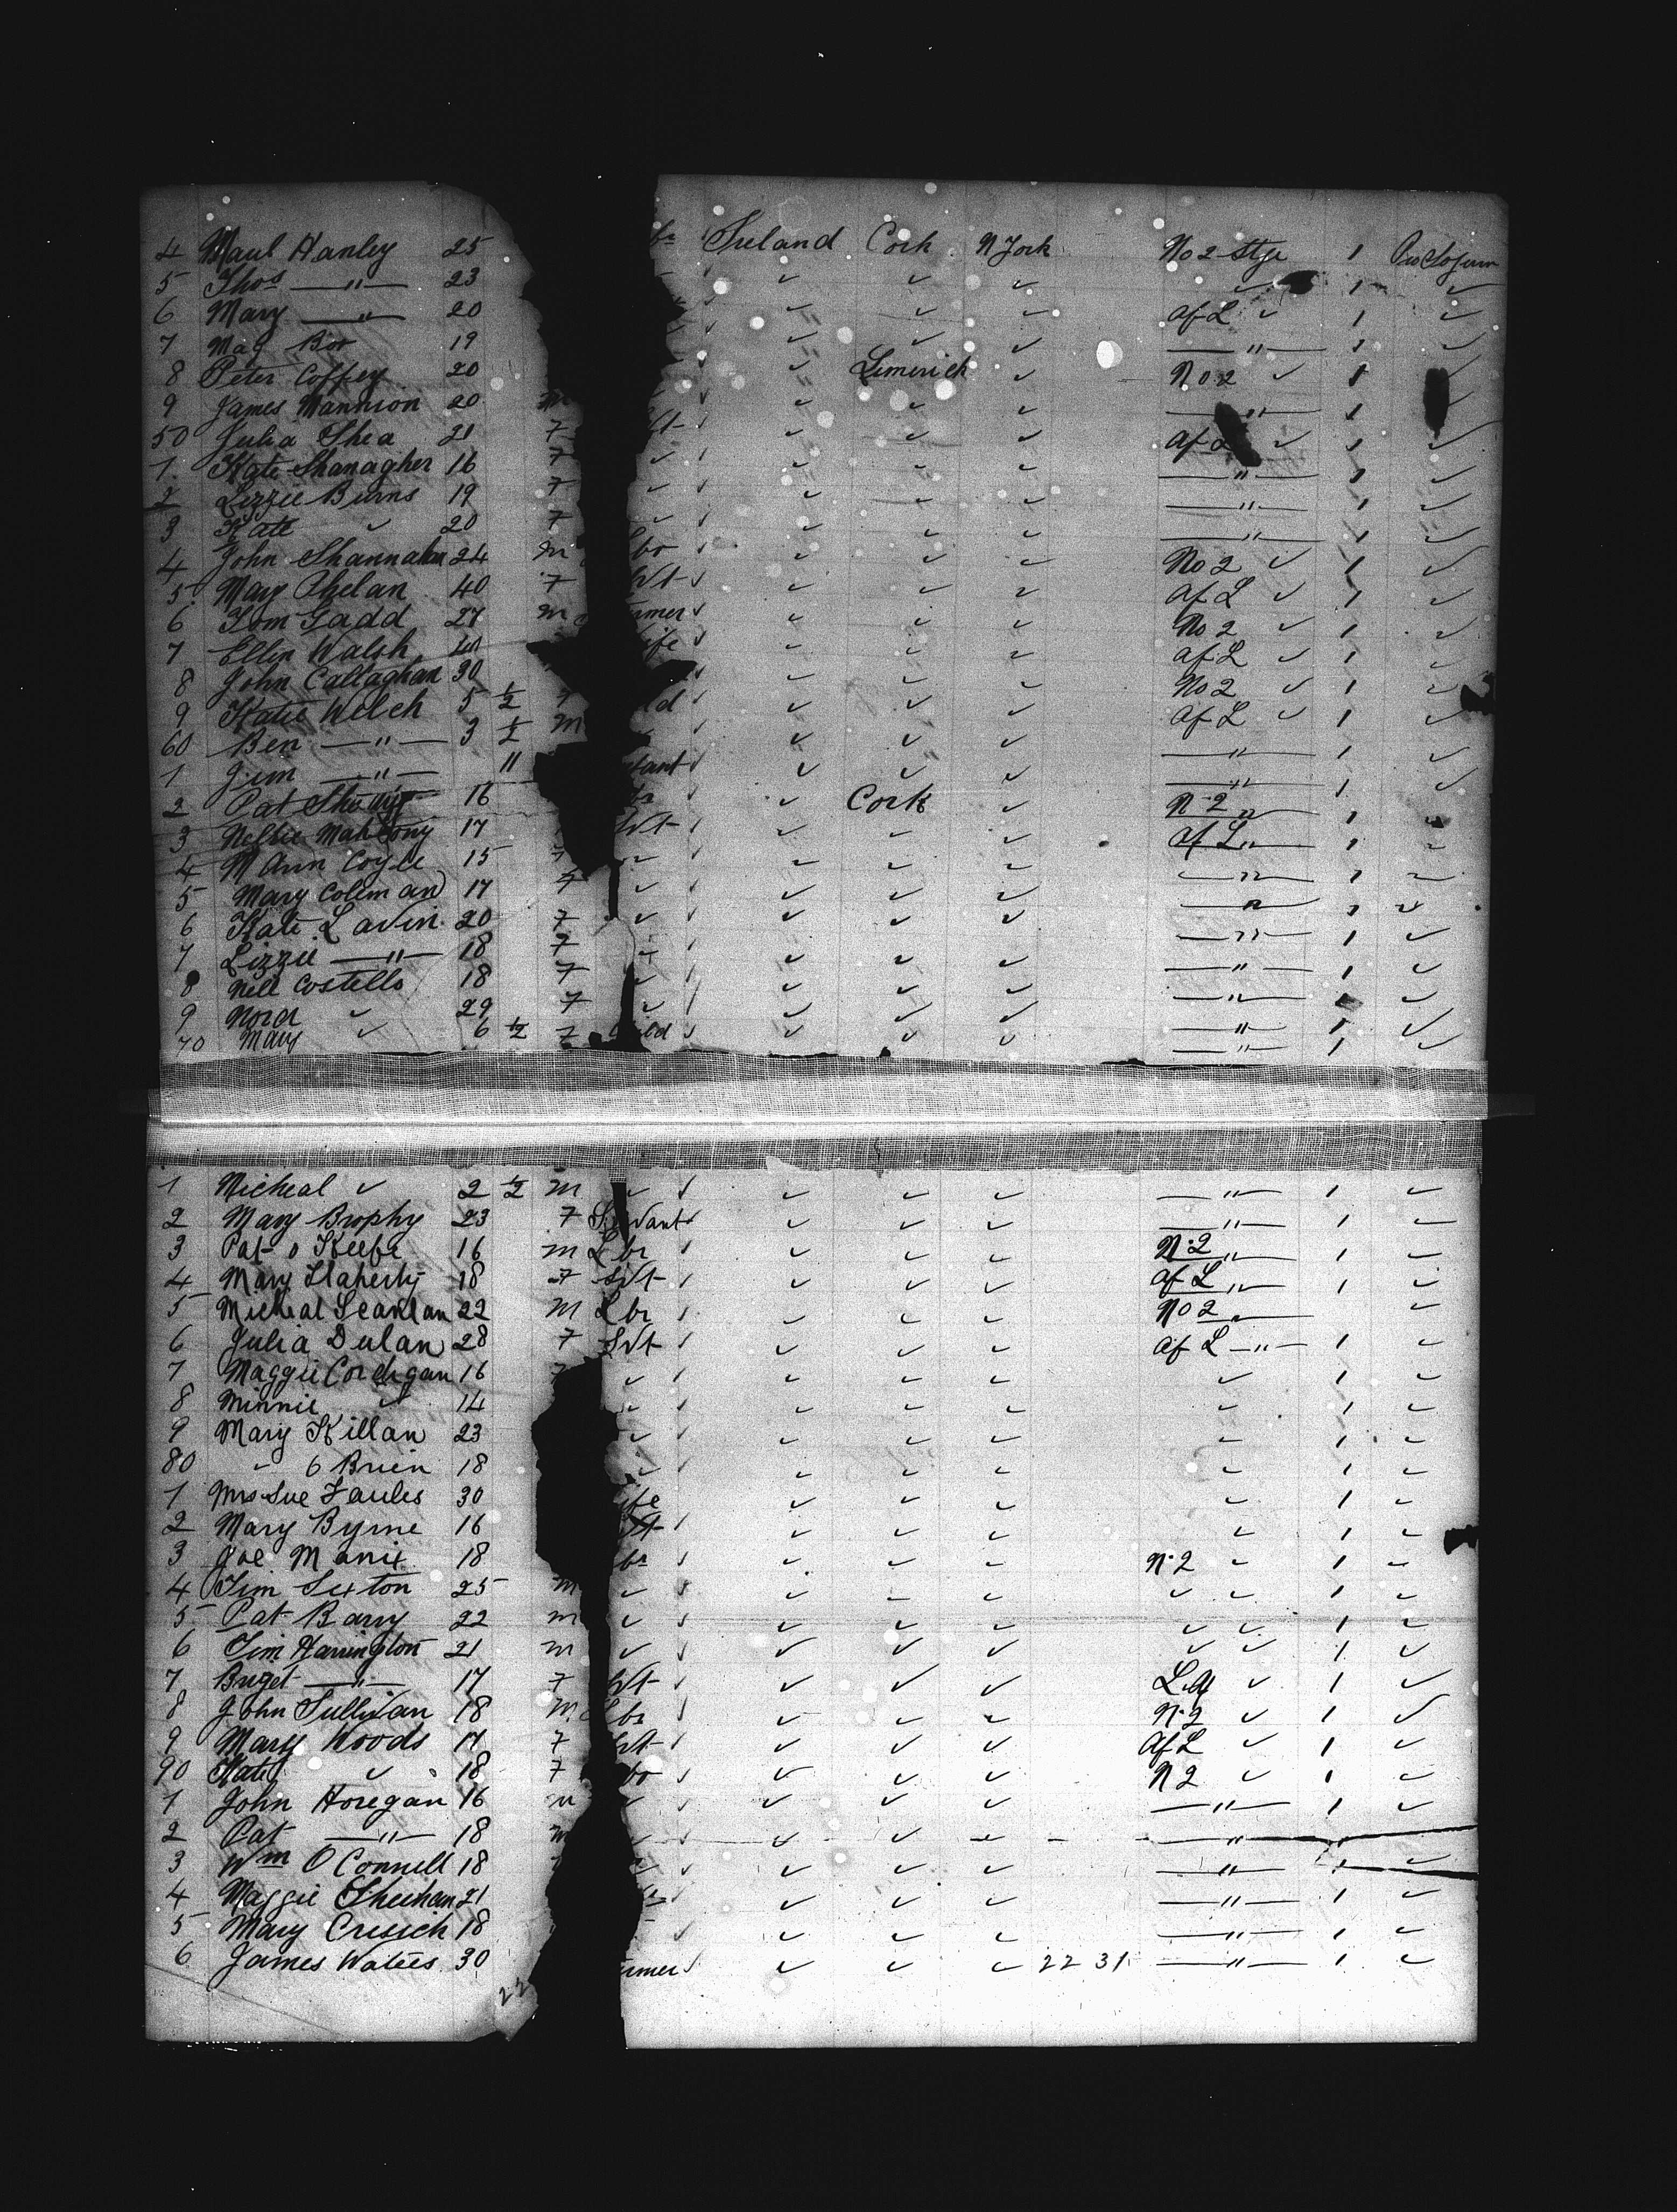 4 Maul Hanley 25 br Ireland Cork N York No 2 Stge 1
5 Thos —"— 23 ✓ ✓ ✓ ✓ 1 ✓
6 Mary —"— 20 ✓ ✓ ✓ af L ✓ 1 ✓
7 Mag 19 ✓ ✓ ✓ —"— 1 ✓
8 Peter Coffey 20 ✓ Limerick ✓ No 2 ✓ 1 ✓
9 James Mannion 20 m ✓ ✓ ✓ —"— 1 ✓
50 Julia Shea 21 7 vt ✓ ✓ ✓ af L ✓ 1 ✓
1 Kate Shanagher 16 7 ✓ ✓ ✓ ✓ —"— 1 ✓
2 Lizzee Burns 19 7 ✓ ✓ ✓ ✓ —"— 1 ✓
3 Kate ✓ 20 7 ✓ ✓ ✓ ✓ —"— 1 ✓
4 John Shannahan 24 m Lbr ✓ ✓ ✓ No 2 ✓ 1 ✓
5 Mary Phelan 40 7 Svt ✓ ✓ ✓ af L ✓ 1 ✓
6 Tom Gadd 27 m rmer ✓ ✓ ✓ No 2 ✓ 1 ✓
7 Ellen Walsh ife ✓ ✓ ✓ af L ✓ 1 ✓
8 John Callaghan 30 ✓ ✓ ✓ No 2 ✓ 1 ✓
9 Katie Welch 5 ½ 7 ld ✓ ✓ ✓ af L ✓ 1 ✓
60 Ben —"— 3 ½ m ✓ ✓ ✓ —"— 1 ✓
1 Jim —"— 11 fant ✓ ✓ ✓ —"— 1 ✓
2 Pat 16 br ✓ Cork ✓ No 2 " 1
3 Nellie Mahoony 17 Svt ✓ ✓ ✓ af L " 1 ✓
4 M Ann Coyle 15 7 ✓ ✓ ✓ ✓ —"— 1 ✓
5 Mary Coleman 17 7 ✓ ✓ ✓ ✓ —"— 1 ✓
6 Kate Lavin 20 7 ✓ ✓ ✓ ✓ —"— 1 ✓
7 Lizzie —"— 18 7 ✓ ✓ ✓ ✓ —"— 1 ✓
8 Nell Costello 18 7 ✓ ✓ ✓ ✓ —"— ✓
9 Nora ✓ 29 7 ✓ ✓ ✓ ✓ —"— 1 ✓
70 Mary ✓ 6 ½ 7 Child ✓ ✓ ✓ —"— 1 ✓
1 Micheal ✓ 2 ½ m ✓ ✓ ✓ ✓ —"— 1 ✓
2 Mary Brophy 23 7 Servant ✓ ✓ ✓ —"— 1 ✓
3 Pat O Keefe 16 m Lbr ✓ ✓ ✓ No 2 " 1 ✓
4 Mary Flaherty 18 7 Svt ✓ ✓ ✓ af L " 1 ✓
5 Micheal Scanlan 22 m Lbr ✓ ✓ ✓ No 2 " ✓
6 Julia Dulan 28 7 Svt ✓ ✓ ✓ af L —"— 1 ✓
7 Maggie Cordigan 16 7 ✓ ✓ ✓ ✓ ✓ 1 ✓
8 Minnie ✓ 14 ✓ ✓ ✓ ✓ ✓ 1 ✓
9 Mary Killan 23 ✓ ✓ ✓ ✓ ✓ 1 ✓
80 ✓ O Brien 18 ✓ ✓ ✓ ✓ ✓ 1 ✓
1 Mrs Sue Faules 30 ife ✓ ✓ ✓ ✓ 1 ✓
2 Mary Byrne 16 vt ✓ ✓ ✓ ✓ 1 ✓
3 Joe Manix 18 br ✓ ✓ ✓ No 2 ✓ 1 ✓
4 Jim Sexton 25 m ✓ ✓ ✓ ✓ ✓ ✓ 1 ✓
5 Pat Barry 22 m ✓ ✓ ✓ ✓ ✓ ✓ 1 ✓
6 Tim Harrington 21 m ✓ ✓ ✓ ✓ ✓ ✓ 1 ✓
7 Briget —"— 17 7 Svt ✓ ✓ ✓ ✓ 1 ✓
8 John Sullivan 18 m Lbr ✓ ✓ ✓ No 2 ✓ 1 ✓
9 Mary Woods 17 7 Svt ✓ ✓ ✓ Af L ✓ 1 ✓
90 Kate ✓ 18 7 br ✓ ✓ ✓ N 2 ✓ 1 ✓
1 John Horegan 16 m ✓ ✓ ✓ ✓ —"— 1 ✓
2 Pat —"— 18 m ✓ ✓ ✓ ✓ —"—
3 Wm O Connell 18 ✓ ✓ ✓ ✓ —"— 1 ✓
4 Maggie Sheehan 21 ✓ ✓ ✓ —"— 1 ✓
5 Mary 18 ✓ ✓ ✓ —"— 1 ✓
6 James Waters 30 rmer ✓ ✓ ✓ 22 31 —"— 1 ✓
22